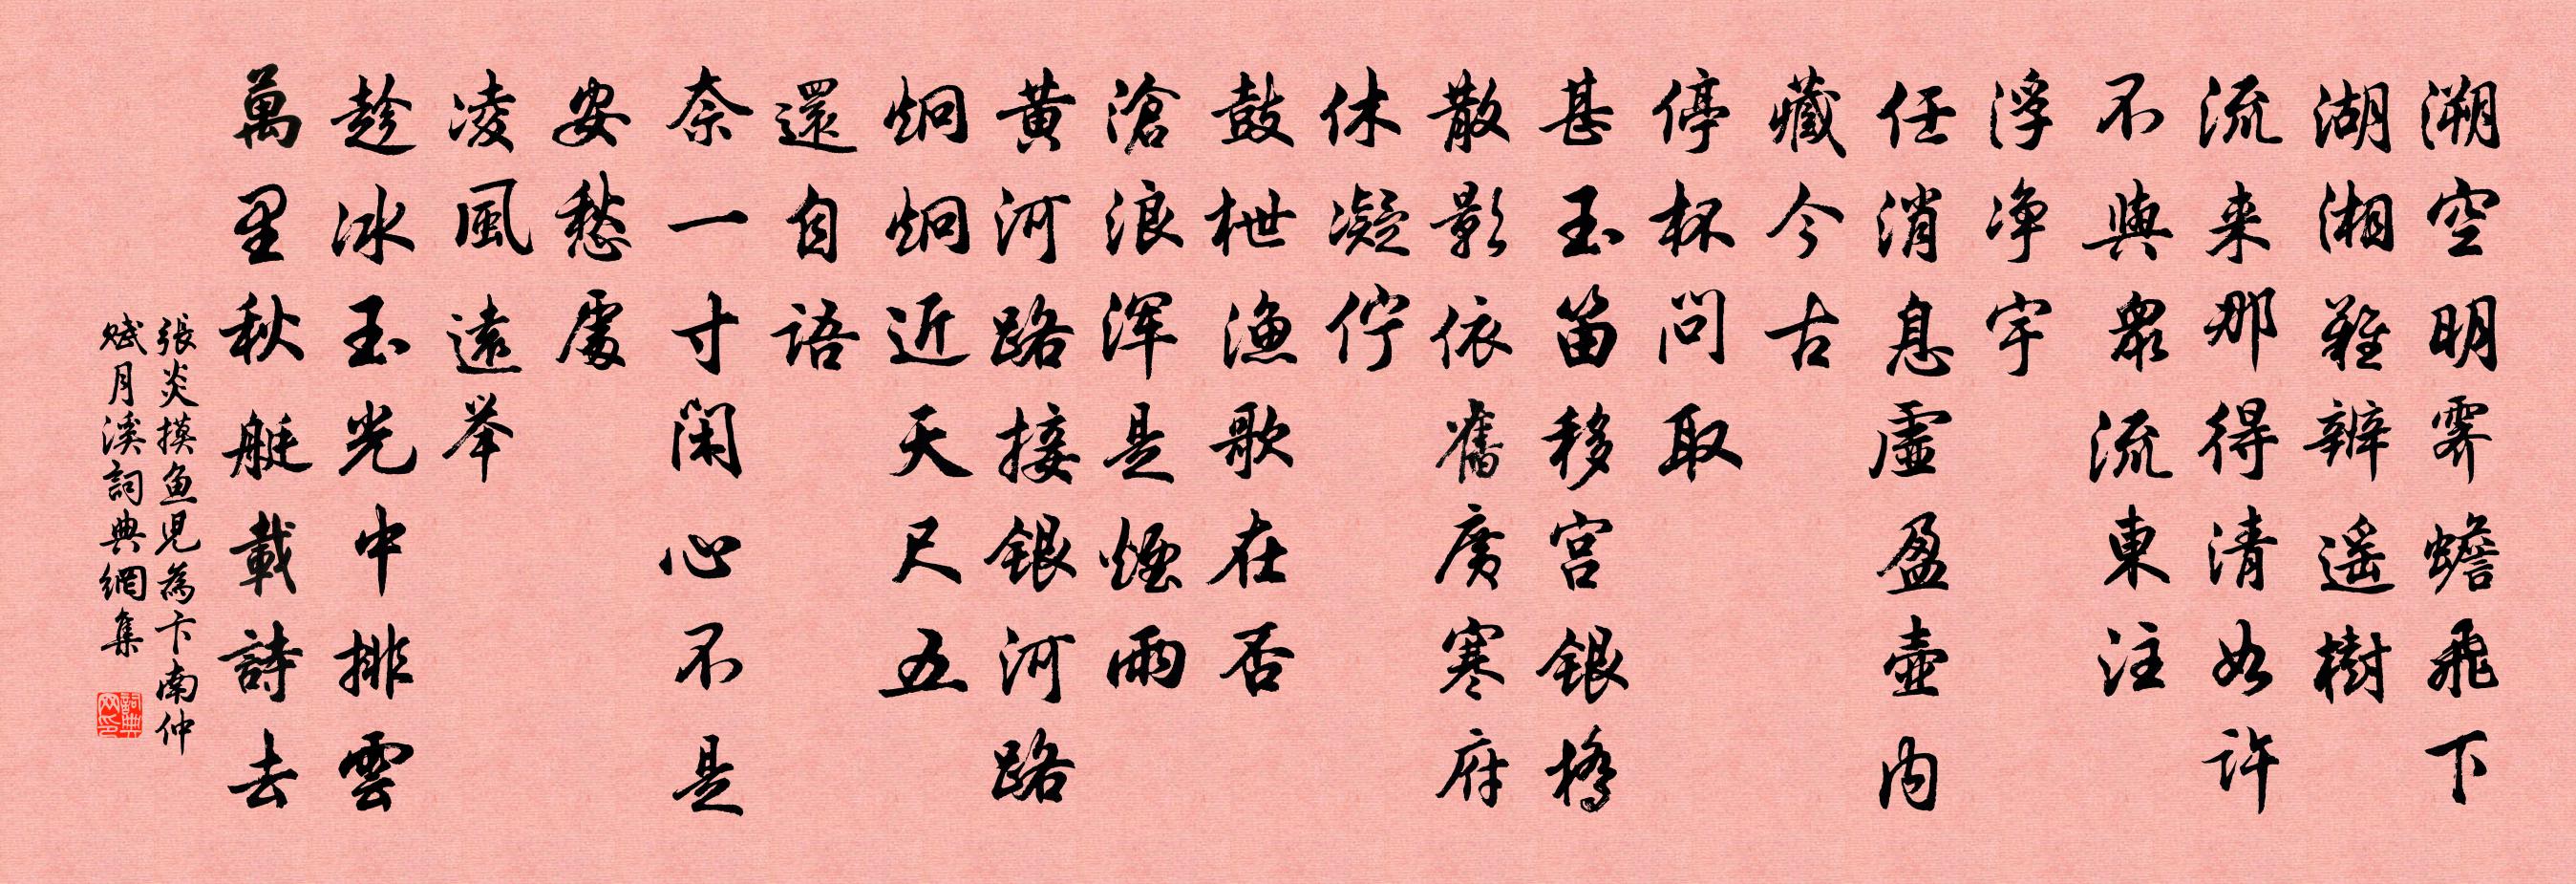 溯空明霽蟾飛下
湖湘難辨遥樹
流来那得清如許
不與衆流東注
浮净宇
任消息虛盈壺内
藏今古
停杯問取
甚玉笛移宫銀橋
散影依舊廣寒府
休凝佇
鼓枻漁歌在否
滄浪浑是煙雨
黄河路接銀河路
炯炯近天尺五
還自語
奈一寸闲心不是
安愁處
凌風遠举
趁冰玉光中排雲
萬里秋艇載詩去
張炎摸鱼兒為卞南仲
赋月溪詞典網集
詞典网印